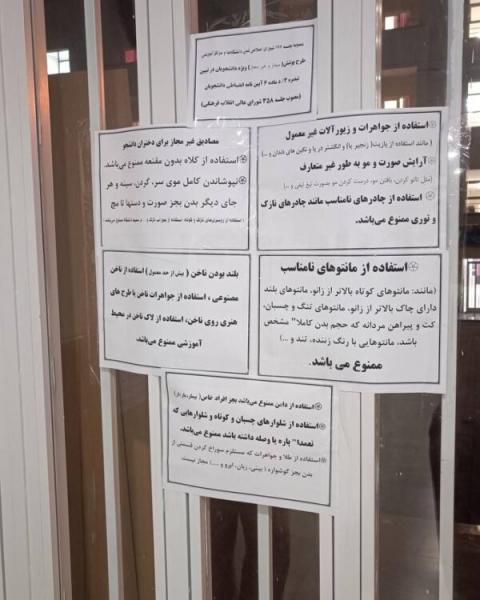 مصوبه جلسه ۱۶۶ شورای اسلامی شدن دانشگاه‌ها و مراکز آموزشی
طرح پوشش (مجاز و غیر مجاز) ویژه دانشجویان در تبیین
تبصره ۳/د ماده ۶ آیین نامه انضباطی دانشجویان
(مصوب جلسه ۳۵۸ شورای عالی انقلاب فرهنگی)
مصادیق غیر مجاز برای دختران دانشجو
استفاده از کلاه بدون مقنعه ممنوع می‌باشد.
نپوشاندن کامل موی سر، گردن، سینه و هر
جای دیگر بدن بجز صورت و دستها تا مچ
استفاده از جواهرات و زیورآلات غیر معمول
(مانند استفاده از پازیت( زنجیر پا) و انگشتر در پا و نگین های دندان و ...)
آرایش صورت و مو به طور غیر متعارف
(مثل تاتو کردن، بافتن مو، درست کردن مو بصورت تیغ تیغی و ...)
استفاده از چادرهای نامناسب مانند چادرهای نازک
و توری ممنوع می‌باشد.
بلند بودن ناخن (بیش از حد معمول) استفاده از ناخن
مصنوعی ، استفاده از جواهرات ناخن یا طرح های
هنری روی ناخن، استفاده از لاک ناخن در محیط
آموزشی ممنوع می‌باشد.
استفاده از مانتوهای نامناسب
(مانند: مانتوهای کوتاه بالاتر از زانو، مانتوهای بلند
دارای چاک بالاتر از زانو، مانتوهای تنگ و چسبان،
کت و پیراهن مردانه که حجم بدن کاملا" مشخص
باشد، مانتوهایی با رنگ زننده، تند و ...)
ممنوع می باشد.
استفاده از دامن ممنوع می‌باشد بجز افراد خاص( بیمار، باردار)
استفاده از شلوارهای چسبان و کوتاه و شلوارهایی که
تعمدا" پاره یا وصله داشته باشد ممنوع می‌باشد.
استفاده از طلا و جواهرات که مستلزم سوراخ کردن قسمتی از
بدن بجز گوشواره ( بینی، زبان، ابرو و ....) مجاز نیست.